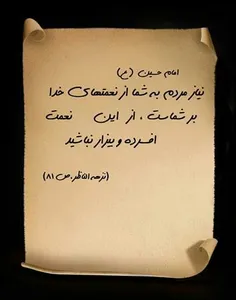 امام حسین (ع)
نیاز مردم به شما از نعمتهای خدا
بر شماست ، از این نعمت
افسرده و بیزار نباشید
(نزهه الناظر ، ص ۸۱)